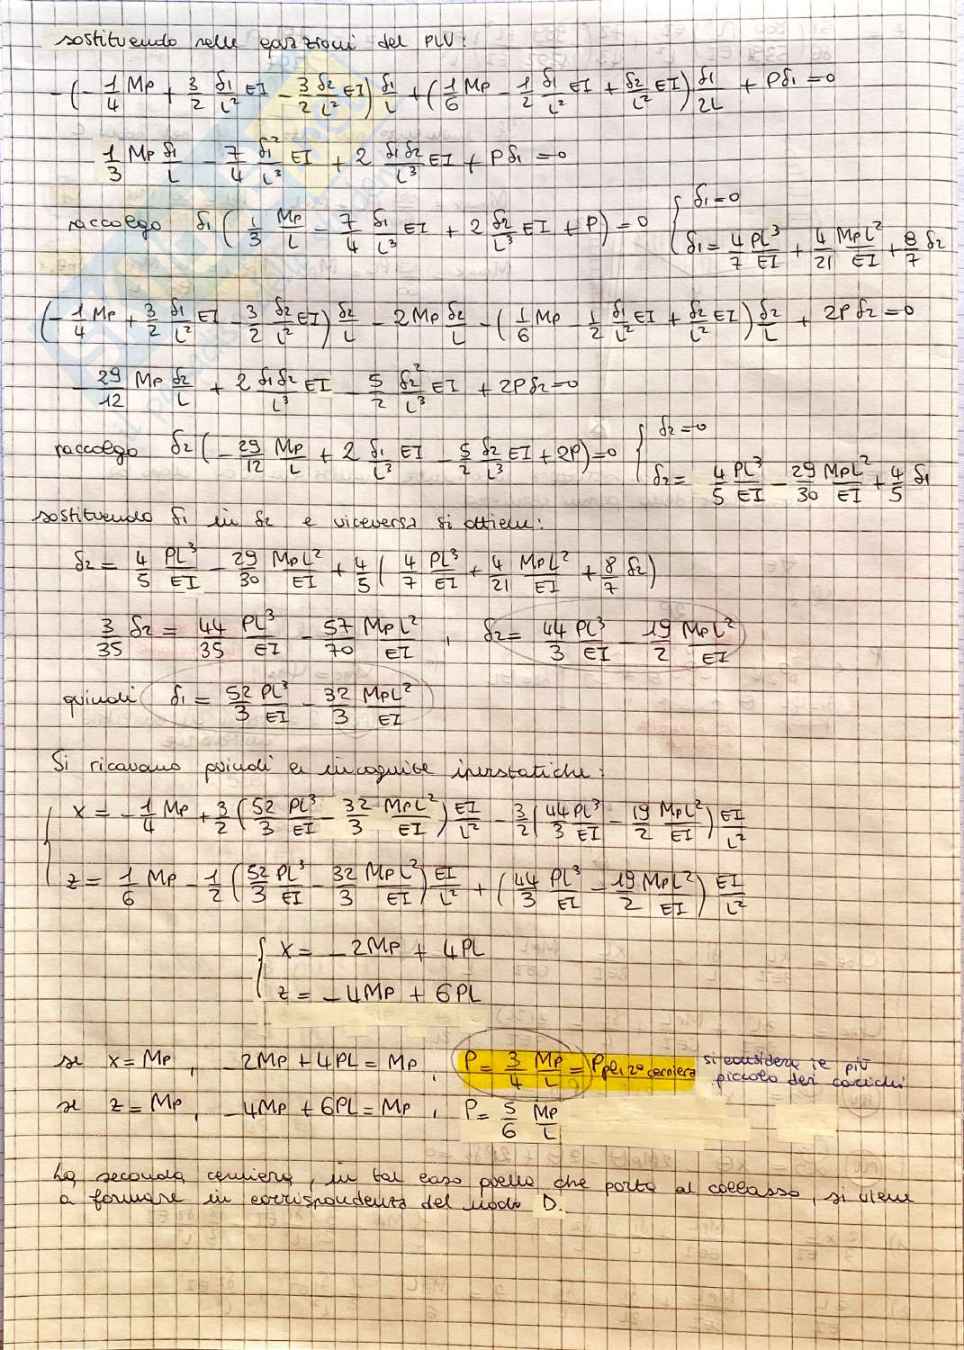 sostituendo nelle equazioni del PLV:
-(-1/4 Mp + 3/2 δ1/L² EI - 3/2 δ2/L² EI) δ1/L + (1/6 Mp - 1/2 δ1/L² EI + δ2/L² EI) δ1/2L + Pδ1 = 0
1/3 Mp δ1/L - 7/4 δ1²/L³ EI + 2 δ1δ2/L³ EI + Pδ1 = 0
raccolgo δ1 (1/3 Mp/L - 7/4 δ1/L³ EI + 2 δ2/L³ EI + P) = 0 { δ1 = 0
δ1 = 4/7 PL³/EI + 4/21 MpL²/EI + 8/7 δ2
(-1/4 Mp + 3/2 δ1/L² EI - 3/2 δ2/L² EI) δ2/L - 2Mp δ2/L - (1/6 Mp - 1/2 δ1/L² EI + δ2/L² EI) δ2/L + 2Pδ2 = 0
- 29/12 Mp δ2/L + 2 δ1δ2/L³ EI - 5/2 δ2²/L³ EI + 2Pδ2 = 0
raccolgo δ2 (-29/12 Mp/L + 2 δ1/L³ EI - 5/2 δ2/L³ EI + 2P) = 0 { δ2 = 0
δ2 = 4/5 PL³/EI - 29/30 MpL²/EI + 4/5 δ1
sostituendo δ1 in δ2 e viceversa si ottiene:
δ2 = 4/5 PL³/EI - 29/30 MpL²/EI + 4/5 (4/7 PL³/EI + 4/21 MpL²/EI + 8/7 δ2)
3/35 δ2 = 44/35 PL³/EI - 57/70 MpL²/EI , δ2 = 44/3 PL³/EI - 19/2 MpL²/EI
quindi δ1 = 52/3 PL³/EI - 32/3 MpL²/EI
Si ricavano quindi le incognite iperstatiche:
{ X = -1/4 Mp + 3/2 (52/3 PL³/EI - 32/3 MpL²/EI) EI/L² - 3/2 (44/3 PL³/EI - 19/2 MpL²/EI) EI/L²
z = 1/6 Mp - 1/2 (52/3 PL³/EI - 32/3 MpL²/EI) EI/L² + (44/3 PL³/EI - 19/2 MpL²/EI) EI/L²
{ X = -2Mp + 4PL
z = -4Mp + 6PL
se X = Mp , -2Mp + 4PL = Mp , P = 3/4 Mp/L = Ppl, 2ª cerniera si considera il più piccolo dei carichi
se z = Mp , -4Mp + 6PL = Mp , P = 5/6 Mp/L
La seconda cerniera, in tal caso quella che porta al collasso, si viene
a formare in corrispondenza del nodo D.